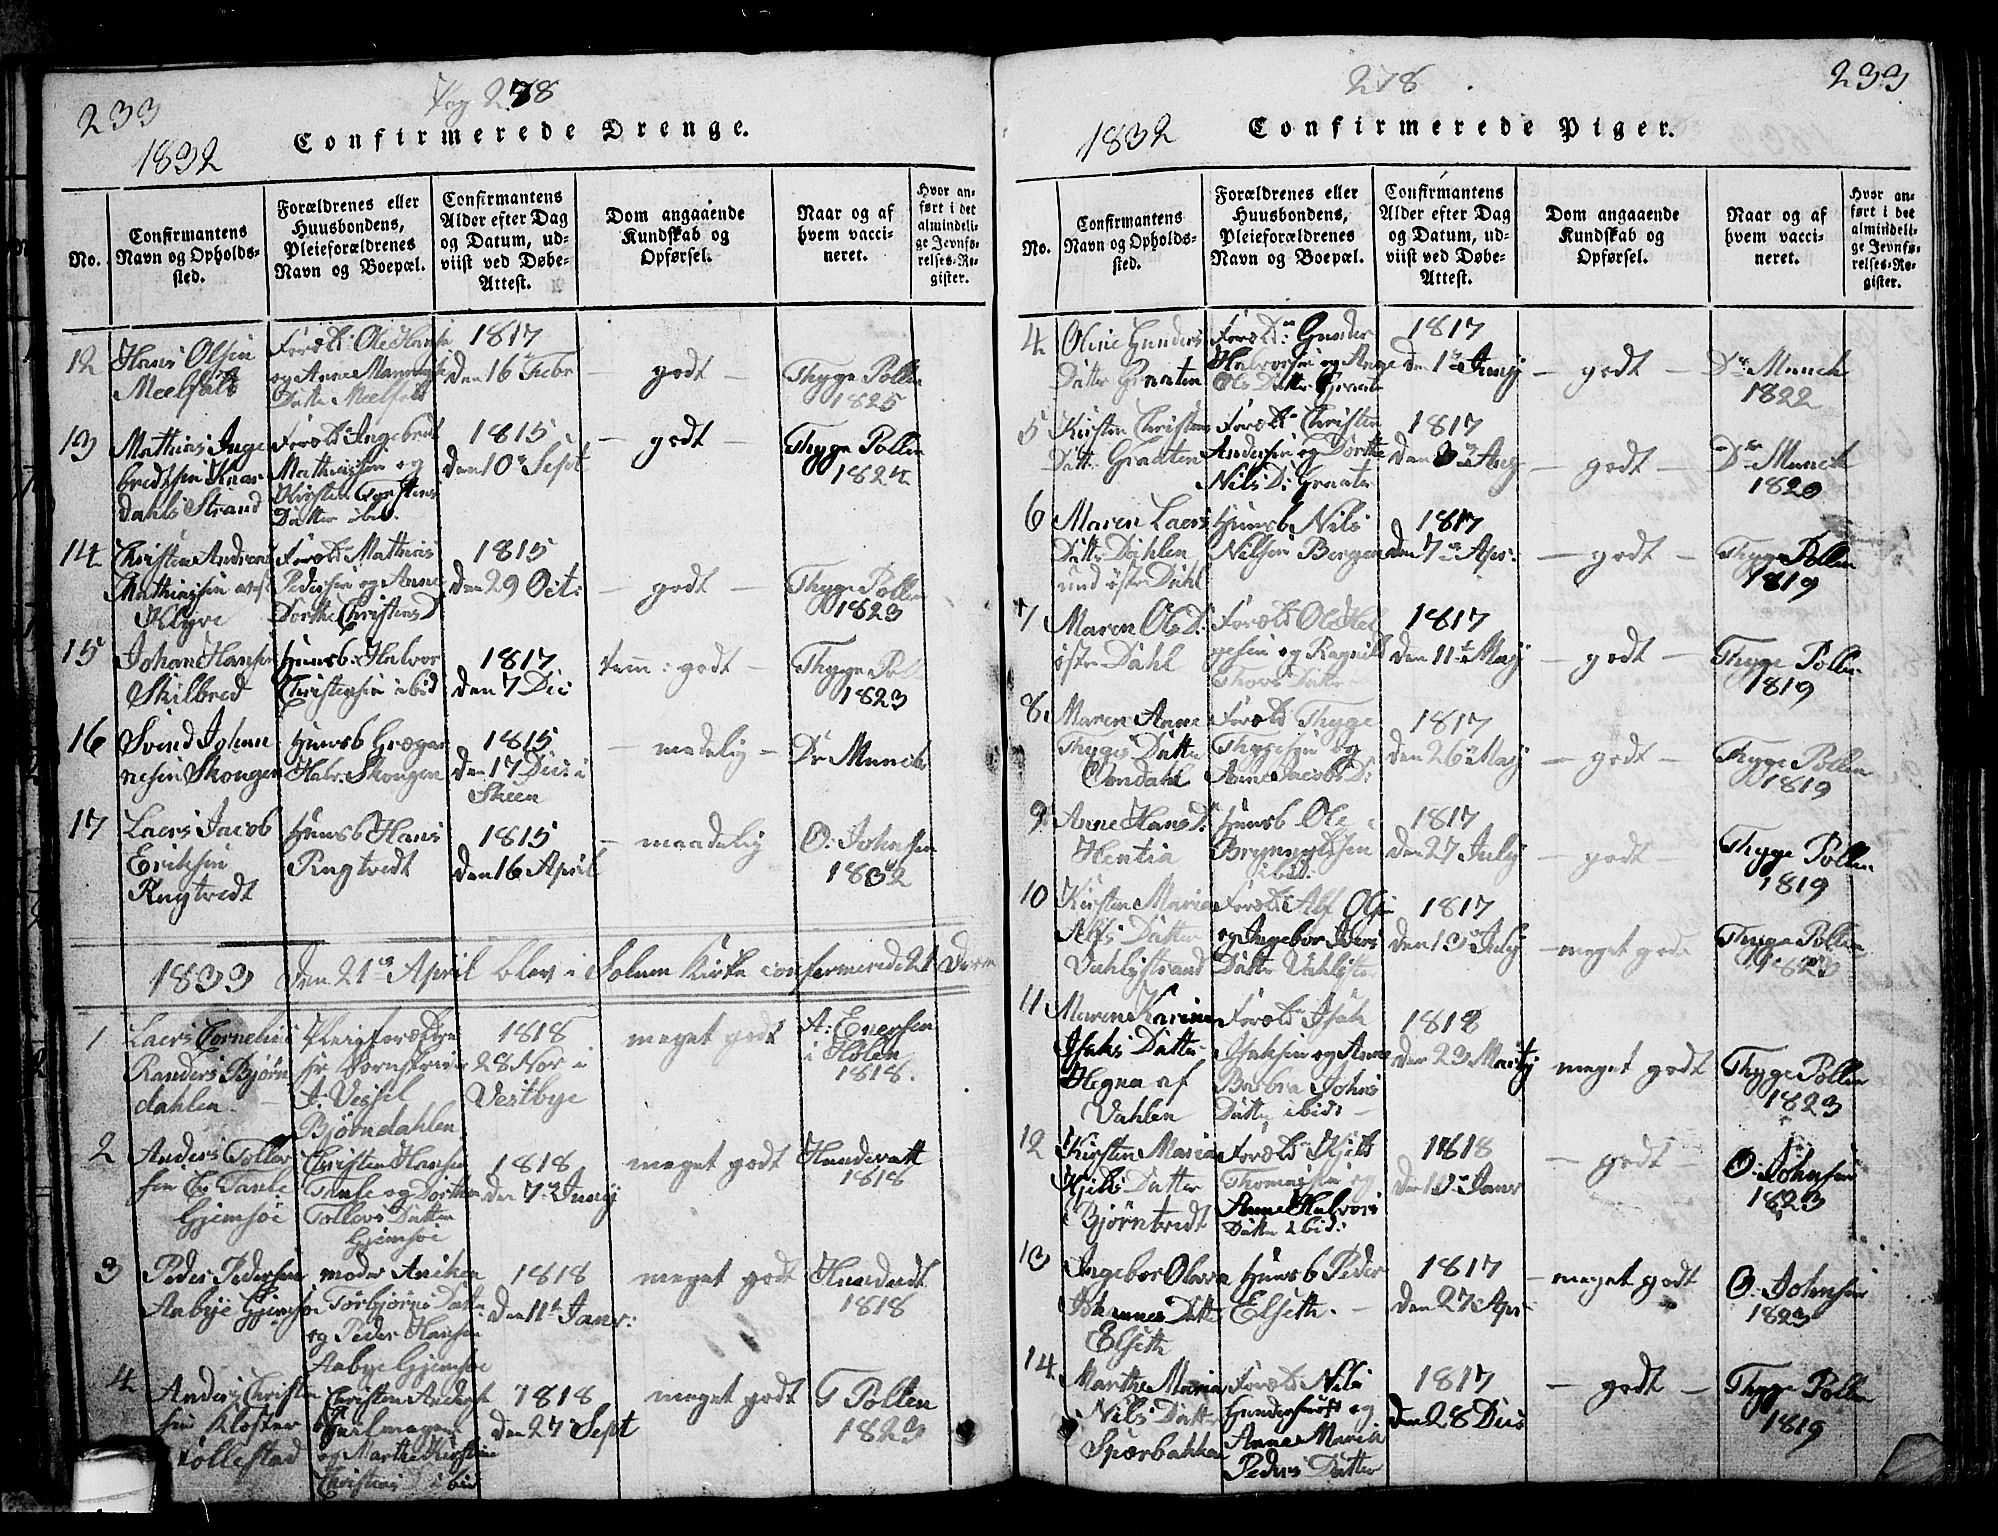 233
Pag 278
1832
Confirmerede Drenge.
No.
Confirmantens
Navn og Opholds-
sted.
Forældrenes eller
Huusbondens,
Pleieforældrenes
Navn og Boepæl.
Confirmantens
Alder efter Dag
og Datum, ud-
viist ved Døbe-
Attest.
Dom angaaende
Kundskab og
Opførsel.
Naar og af
hvem vacci-
neret.
Hvor an-
ført i det
almindeli-
ge Jevnfø-
relses-Re-
gister.
12
Hans Olsen
Meelfald
Foræld: Ole Hansen
og Anne
Datter
1817
den 16 Febr
godt
Thyge Pollen
1825
13
Mathias Inge
bredtsen
dahls Strand
Foræld Ingebredt
Mathissen og
Kirsten
Datter ibid.
1815
den 10 Sept
godt
Thyge Pollen
1824
14
Christen Andreas
Mathissen
Klyve
Foræld Mathias
Pedersen og Anne
Dorthe Christens D
1815
den 29 Oct:
godt
Thyge Pollen
1823
15
Johan Hansen
Skilbred
Huusb: Halvor
Christensen ibid
1817
den 7 Dec
godt
Thyge Pollen
1823
16
Svend Johan
nesen Skougen
Huusb Gregar
Halv. Skougen
1815
den 17 Decs i
Skeen
madelig
Dr Munch
17
Laers Jacob
Eriksen
Rugtvedt
Huusb Hans
Rugtvedt
1815
den 16 April
maadelig
O. Johnsen
1832
1833 den 21 April blev i Solum Kirke confirmerede 21 Dren
1
Laers Cornelius
Randers Bjørn
dahlen
Pleigforældre
J. Vessel
Bjørndahlen
1818
28 Nov i
Vestbye
meget godt
A: Enersen
i Holen
1818.
2
Anders Tollev
sen
Gjemsøe
Christen Hansen
og Dorthea
Tollevs Datter
Gjemsøe
1818
den 7 Juny
meget godt
1818
3
Peder Pedersen
Aabye Gjemsøe
moder Aniken
Torbjørns Datter
og Peder Hansen
Aabye Gjemsøe
1818
den 11 Janr:
meget godt
1818
4
Anders Christen
sen Kloster
Follestad
Christen Anders
og Marthe Kirstine
Christens D ibid
1818
den 27 Sept
meget godt
T Pollen
1823
278
233
1832
Confirmerede Piger.
No.
Confirmantens
Navn og Opholds-
sted.
Forældrenes eller
Huusbondens,
Pleieforældrenes
Navn og Boepæl.
Confirmantens
Alder efter Dag
og Datum, ud-
viist ved Døbe-
Attest.
Dom angaaende
Kundskab og
Opførsel.
Naar og af
hvem vacci-
neret.
Hvor an-
ført i det
almindeli-
ge Jevnfø-
relses-Re-
gister.
4
Oline Gunders
Datter Graaten
Foræld: Gunder
Halvorsen og Anne
Ols Datter Graaten
1817
den 1 Juny
godt
Dr Munch
1822
5
Kirsten Christens
Datter Graaten
Foræld Christen
Andersen og Dorthe
Nils D: Graaten
1817
den 3 Aug
godt
Dr Munch
1820
6
Maren Laers
Datter Dahlen
und østre Dahl
Huusb Nils
Nilsen Bergan
1817
den 7 Apr:
godt
Thyge Pollen
1819
7
Maren Ols D:
østre Dahl
Foræld Ole Hel
gesen og Ragnild
Thors Datter
1817
den 11 May
godt
Thyge Pollen
1819
8
Maren Anne
Thyges Datter
Omdahl
Foræld Thyge
Thygesen og
Anne Jacobs D:
1817
den 26 May
godt
Thyge Pollen
1819
9
Anne Hans D:
Huusb Ole
ibid:
1817
den 27 July
godt
Thyge Pollen
1819
10
Kirsten Maria
Alfs Datter
Vahlystrand
Foræld Alf Olsen
og Ingebor Ivers
Datter
1817
den 13 July
meget godt
Thyge Pollen
1823
11
Maren Karine
Isaks Datter
Hegna af
Vahlen
Foræld Isak
Isaksen og Anne
Barbra Johns
Datter ibid:
1818
den 23 Marty
meget godt
Thyge Pollen
1823
12
Kirsten Maria
Kjels Datter
Bjørntvedt
Foræld Kjels
Thomassen og
Anne Halvors
Datter ibid:
1818
den 1 Janr
godt
O. Johnsen
1823
13
Ingebor Olavva
Johannes Datter
Elseth
Huusb Peder
Elseth.
1817
den 27 Apr
meget godt
O. Johnsen
1823
14
Marthe Maria
Nils Datter
Spærbakken
Foræld Nils
Gundersen og
Anne Maria
Peders Datter
1817
den 28 Decs
godt
Thyge Pollen
1819